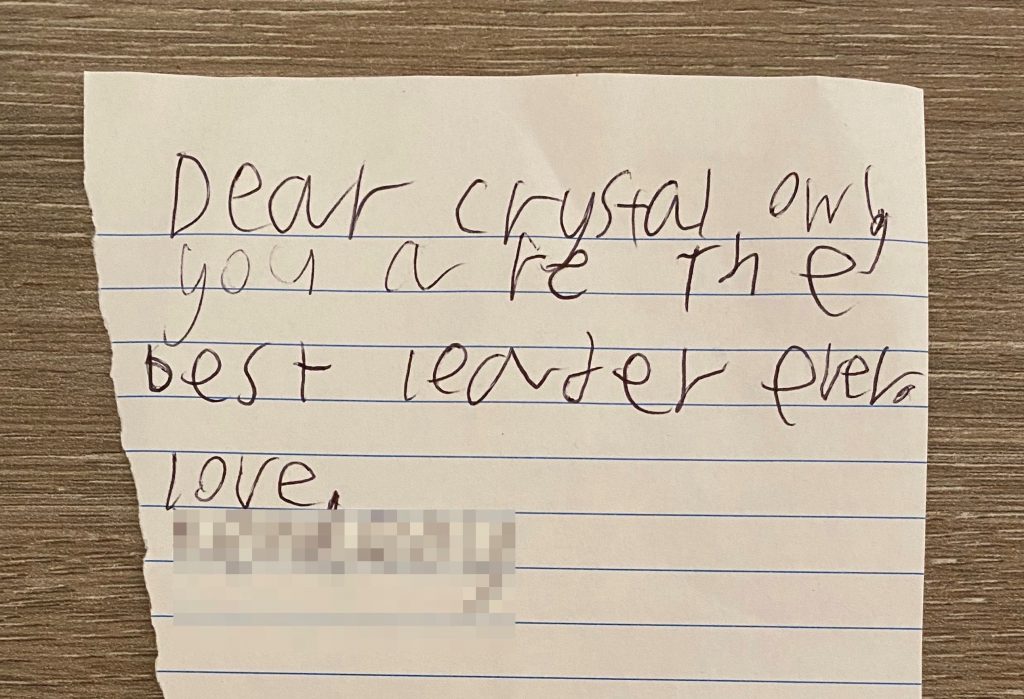 Dear crystal owl,
you are the
best leader ever.
love,